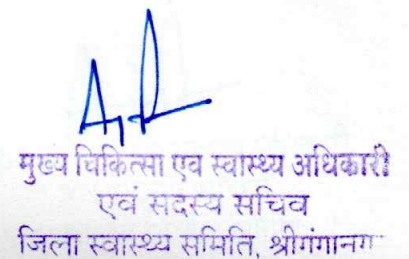 मुख्य चिकित्सा एव स्वास्थ्य अधिकारी
एवं सदस्य सचिव
जिला स्वास्थ्य समिति, श्रीगंगानग